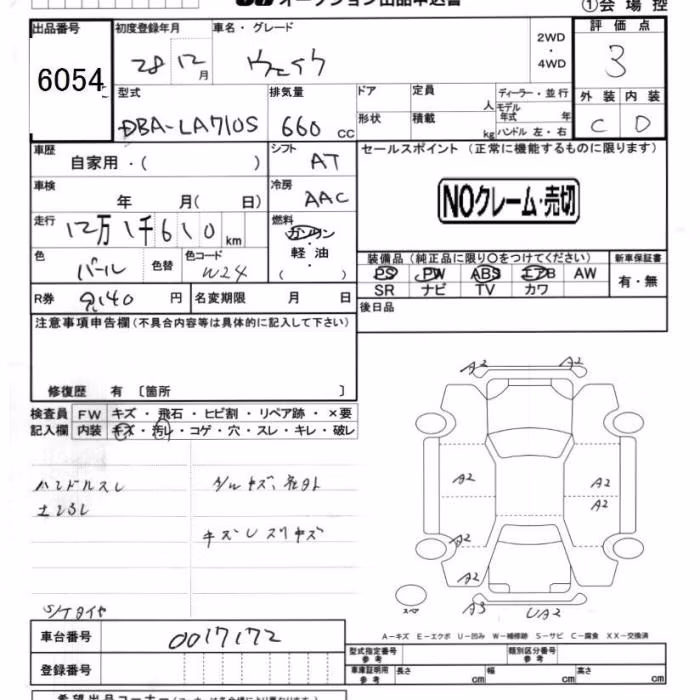 オークション出品申込書
①会場控
出品番号 初度登録年月 車名・グレード 2WD・4WD 評価点
6054 28 12月 ウェイク 3
型式 排気量 ドア 定員 人 ディーラー・並行 外装 内装
DBA-LA710S 660 cc 形状 積載 kg モデル年式 年 ハンドル 左・右 C D
車歴 自家用・( ) シフト AT セールスポイント (正常に機能するものに限ります)
車検 年 月( 日) 冷房 AAC NOクレーム・売切
走行 12万1千610km 燃料 ガソリン・軽油 ( )
色 パール 色替 色コード W24
装備品 (純正品に限り〇をつけてください) 新車保証書
PS PW ABS エアB AW 有・無
SR ナビ TV カワ
R券 9,140円 名変期限 月 日 後日品
注意事項申告欄 (不具合内容等は具体的に記入して下さい)
修復歴 有 〔箇所 〕
検査員 FW キズ・飛石・ヒビ割・リペア跡・×要
記入欄 内装 キズ・汚レ・コゲ・穴・スレ・キレ・破レ
A2 A2
A2 A2
A2
A2 A2
A2
A3 UA2
スペア
ハンドルスレ
キズレ スリキズ
S/Tタイヤ
A-キズ E-エクボ U-凹み W-補修跡 S-サビ C-腐食 XX-交換済
車台番号 0017172
型式指定番号 参考 類別区分番号 参考
登録番号 車庫証明用 参考 長さ cm 幅 cm 高さ cm
希望出品コーナー